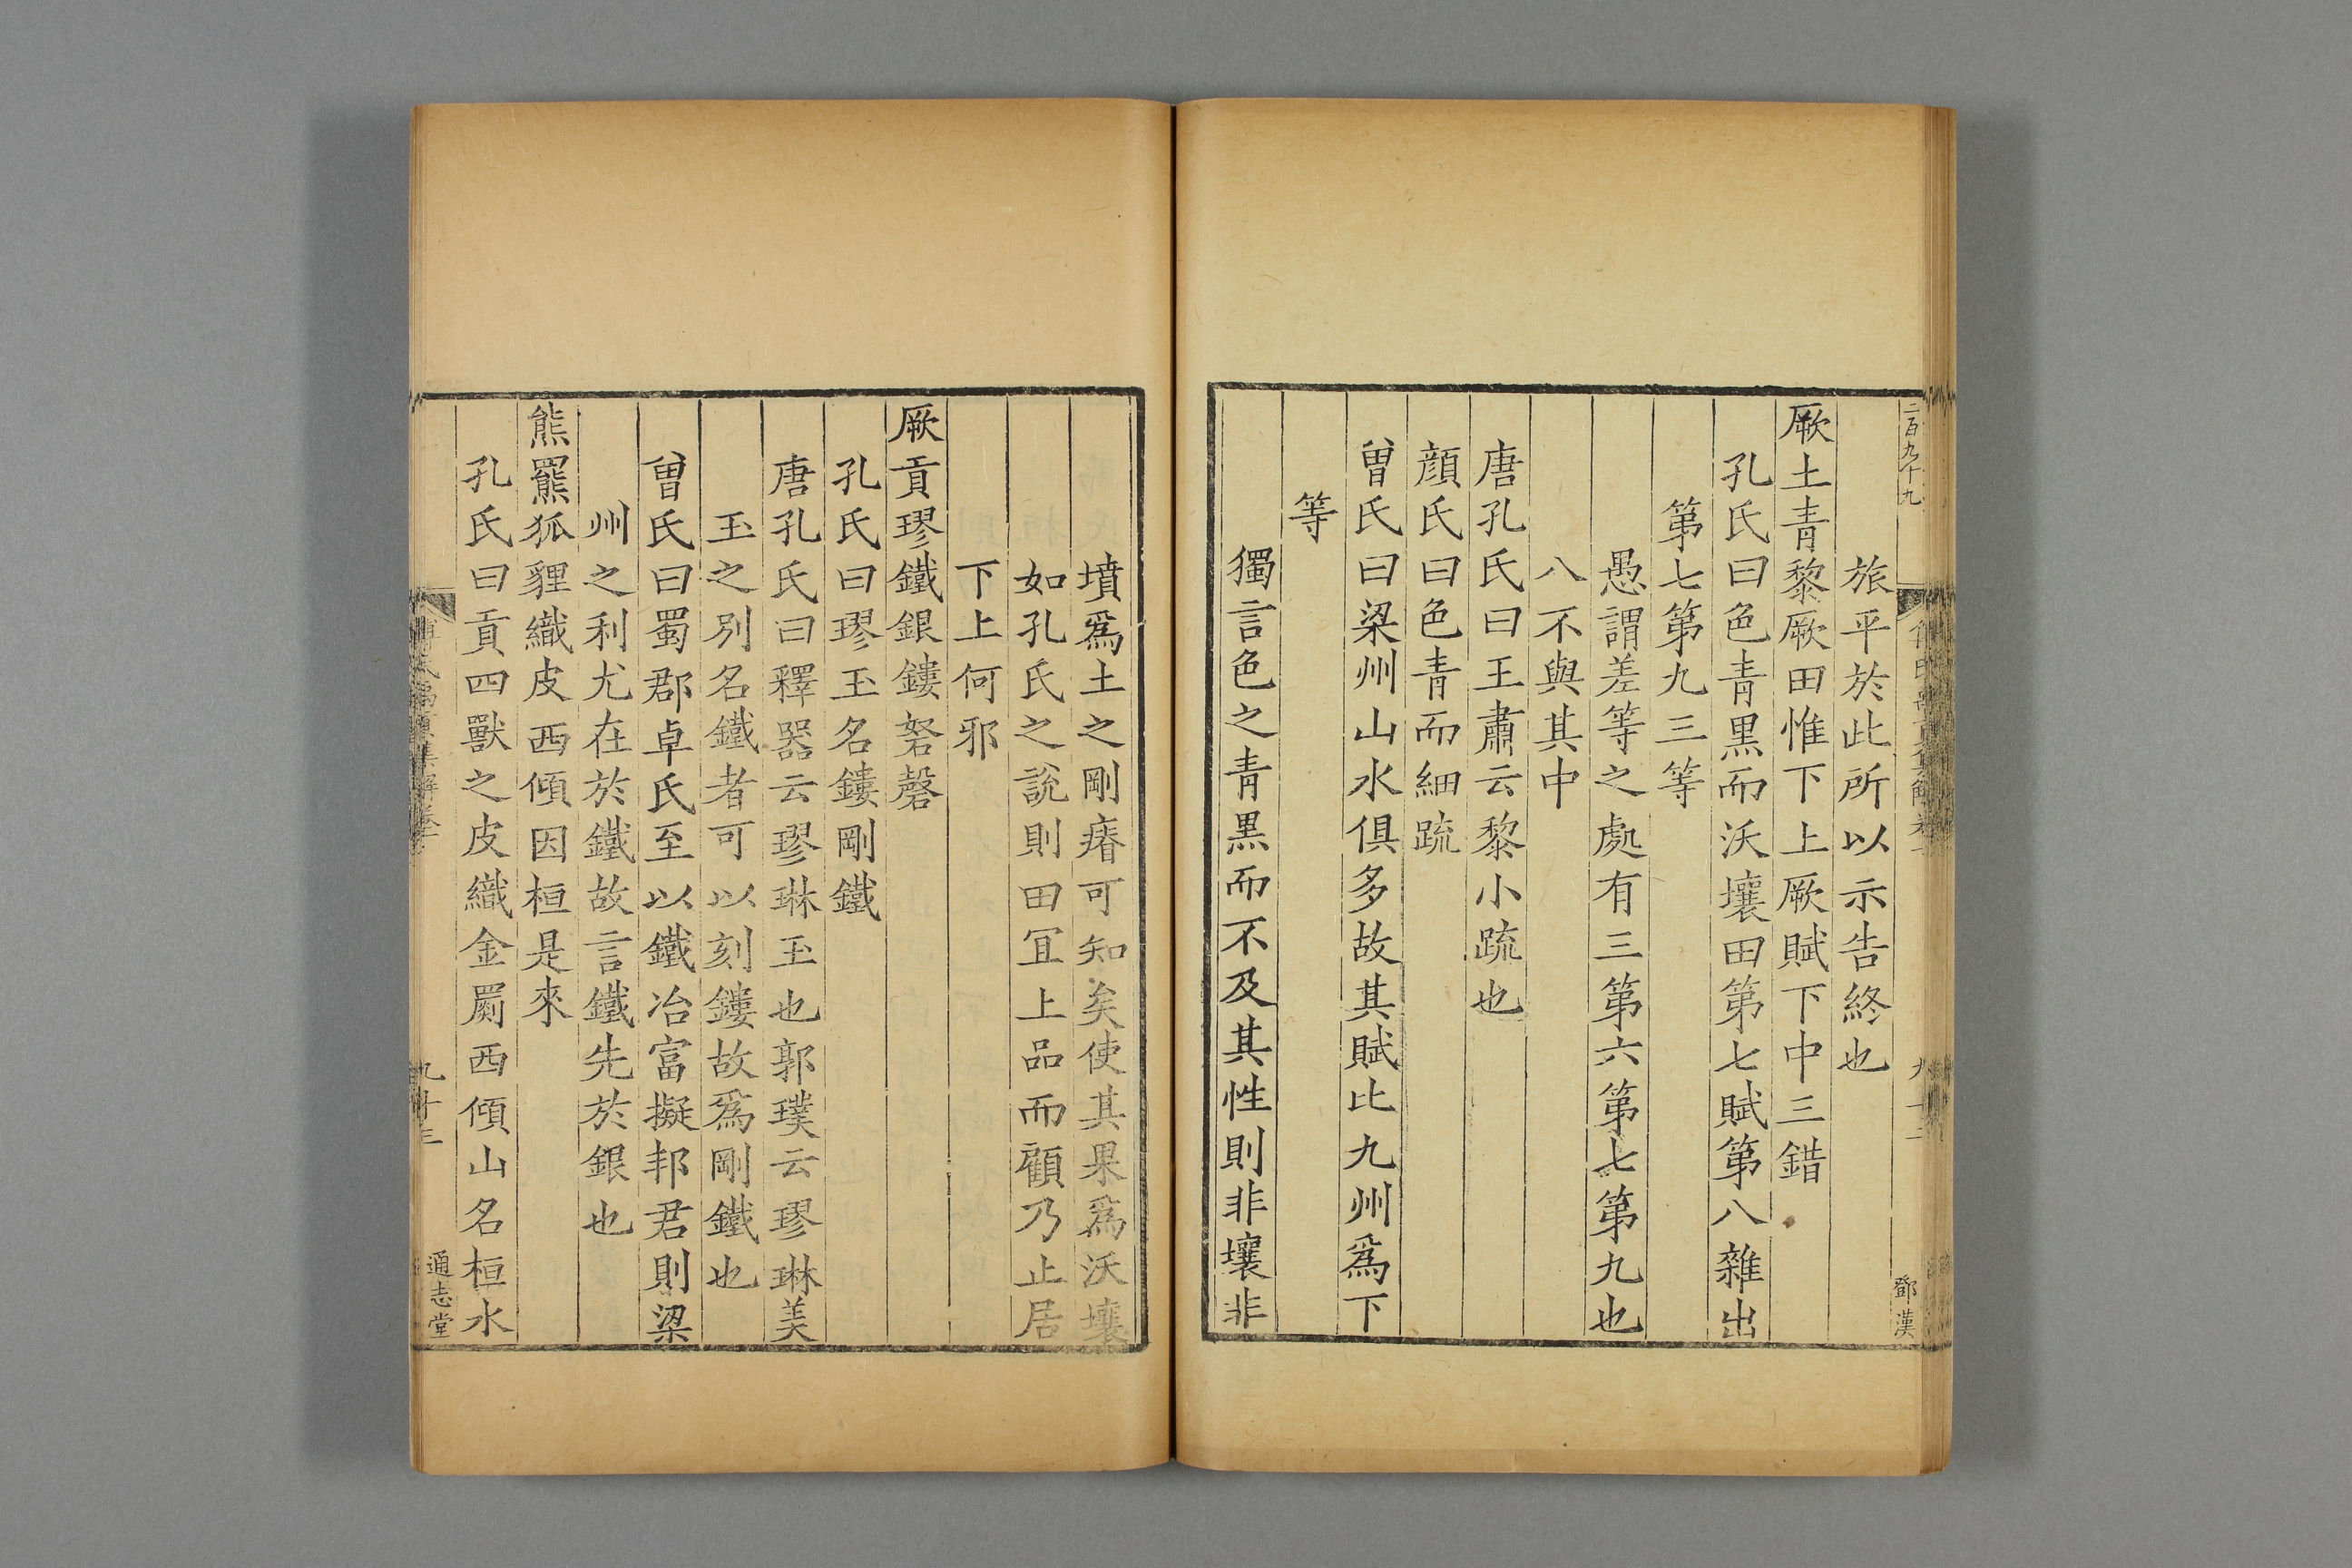 二百九十九
鄧漢
旅平於此所以示告終也
厥土青黎厥田惟下上厥賦下中三錯
孔氏曰色青黑而沃壤田第七賦第八雜出
第七第九三等
愚謂差等之處有三第六第七第九也
八不與其中
唐孔氏曰王肅云黎小疏也
顔氏曰色青而細疏
曾氏曰梁州山水俱多故其賦比九州爲下
等
獨言色之青黑而不及其性則非壤非
墳爲土之剛瘠可知矣使其果爲沃壤
如孔氏之說則田冝上品而顧乃止居
下上何邪
厥貢璆鐵銀鏤砮磬
孔氏曰璆玉名鏤剛鐵
唐孔氏曰釋器云璆琳玉也郭璞云璆琳美
玉之別名鐵者可以刻鏤故爲剛鐵也
曾氏曰蜀郡卓氏至以鐵冶富擬邦君則梁
州之利尤在於鐵故言鐵先於銀也
熊羆狐貍織皮西傾因桓是來
孔氏曰貢四獸之皮織金罽西傾山名桓水
九十三
通志堂